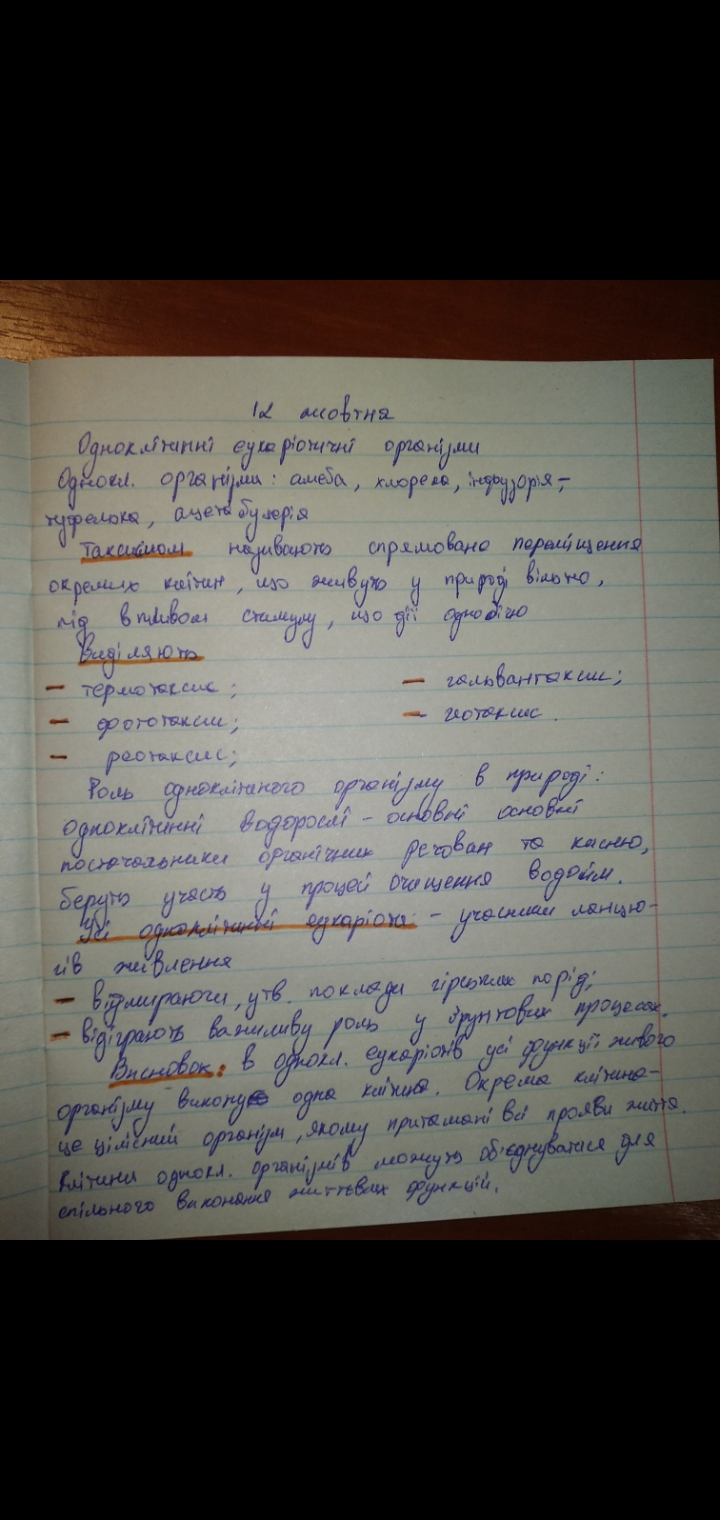 12 жовтня
Одноклітинні еукаріотичні організми
Однокл. організми: амеба, хлорела, інфузорія-
туфелька, ацетабулярія
Таксисом називають спрямоване переміщення
окремих клітин, що живуть у природі вільно,
під впливом стимулу, що діє однобічно
Виділяють
- термотаксис; - гальванотаксис;
- фототаксис; - геотаксис.
- реотаксис;
Роль одноклітиного організму в природі:
одноклітинні водорослі - основні основні
постачальники органічних речовин та кисню,
беруть участь у процесі очищення водойм.
Усі одноклітинні еукаріоти - учасники ланцю-
гів живлення
- відмираючи, утв. поклади гірських порід;
- відіграють важливу роль у ґрунтових процесах.
Висновок: в однокл. еукаріотів усі функції живого
організму виконує одна клітина. Окрема клітина-
це цілісний організм, якому притамані всі прояви життя.
Клітини однокл. організмів можуть об'єднуватися для
спільного виконання життєвих функцій.